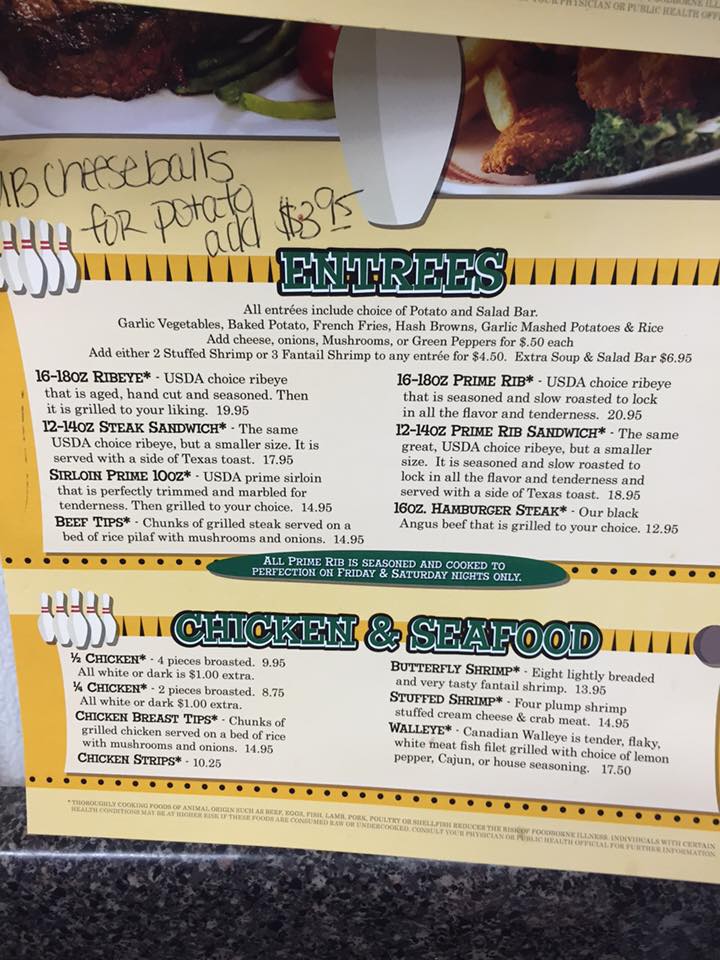 YOUR PHYSICIAN OR PUBLIC HEALTH
cheeseballs
for potato
add $3.95
ENTREES
All entrées include choice of Potato and Salad Bar.
Garlic Vegetables, Baked Potato, French Fries, Hash Browns, Garlic Mashed Potatoes & Rice
Add cheese, onions, Mushrooms, or Green Peppers for $.50 each
Add either 2 Stuffed Shrimp or 3 Fantail Shrimp to any entrée for $4.50. Extra Soup & Salad Bar $6.95
16-18OZ RIBEYE* - USDA choice ribeye
that is aged, hand cut and seasoned. Then
it is grilled to your liking. 19.95
12-14OZ STEAK SANDWICH* - The same
USDA choice ribeye, but a smaller size. It is
served with a side of Texas toast. 17.95
SIRLOIN PRIME 10OZ* - USDA prime sirloin
that is perfectly trimmed and marbled for
tenderness. Then grilled to your choice. 14.95
BEEF TIPS* - Chunks of grilled steak served on a
bed of rice pilaf with mushrooms and onions. 14.95
16-18OZ PRIME RIB* - USDA choice ribeye
that is seasoned and slow roasted to lock
in all the flavor and tenderness. 20.95
12-14OZ PRIME RIB SANDWICH* - The same
great, USDA choice ribeye, but a smaller
size. It is seasoned and slow roasted to
lock in all the flavor and tenderness and
served with a side of Texas toast. 18.95
16OZ. HAMBURGER STEAK* - Our black
Angus beef that is grilled to your choice. 12.95
ALL PRIME RIB IS SEASONED AND COOKED TO
PERFECTION ON FRIDAY & SATURDAY NIGHTS ONLY.
CHICKEN & SEAFOOD
½ CHICKEN* - 4 pieces broasted. 9.95
All white or dark is $1.00 extra.
¼ CHICKEN* - 2 pieces broasted. 8.75
All white or dark $1.00 extra.
CHICKEN BREAST TIPS* - Chunks of
grilled chicken served on a bed of rice
with mushrooms and onions. 14.95
CHICKEN STRIPS* - 10.25
BUTTERFLY SHRIMP* - Eight lightly breaded
and very tasty fantail shrimp. 13.95
STUFFED SHRIMP* - Four plump shrimp
stuffed cream cheese & crab meat. 14.95
WALLEYE* - Canadian Walleye is tender, flaky,
white meat fish filet grilled with choice of lemon
pepper, Cajun, or house seasoning. 17.50
* THOROUGHLY COOKING FOODS OF ANIMAL ORIGIN SUCH AS BEEF, EGGS, FISH, LAMB, PORK, POULTRY OR SHELLFISH REDUCES THE RISK OF FOODBORNE ILLNESS. INDIVIDUALS WITH CERTAIN
HEALTH CONDITIONS MAY BE AT HIGHER RISK IF THESE FOODS ARE CONSUMED RAW OR UNDERCOOKED. CONSULT YOUR PHYSICIAN OR PUBLIC HEALTH OFFICIAL FOR FURTHER INFORMATION